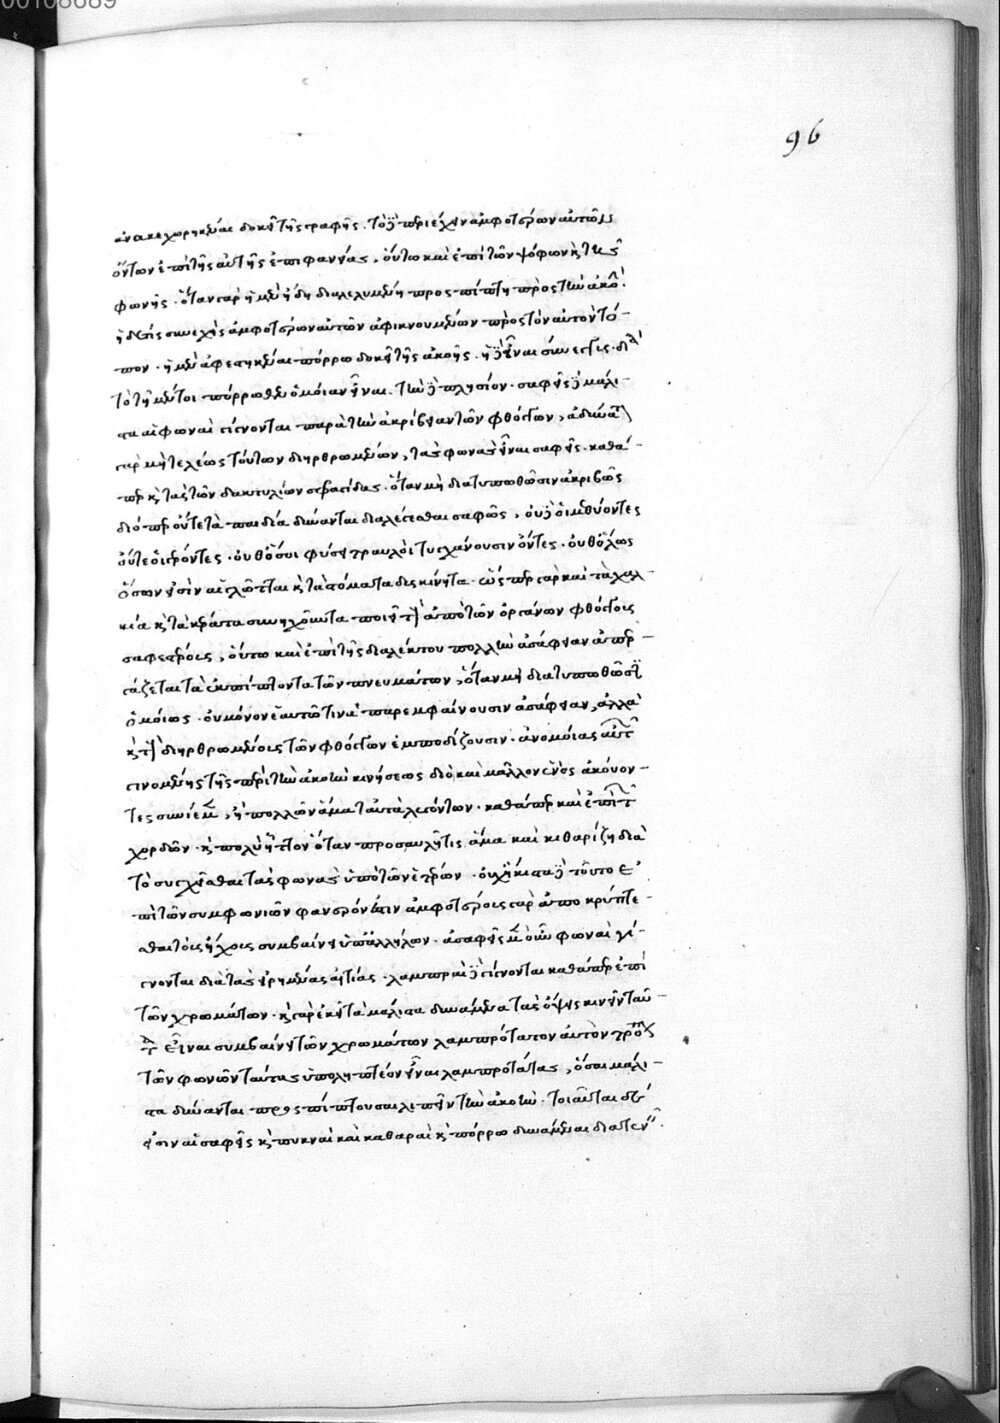 00108689
96
ἀνακεχωρηκέναι δοκεῖ τῆς γραφῆς. τὸ δὲ προέχειν ἀμφοτέρων αὐτῶν
ὄντων ἐπὶ τῆς αὐτῆς ἐπιφανείας, οὕτω καὶ ἐπὶ τῶν ψόφων καὶ τῆς
φωνῆς. ὅταν γὰρ ἡ μὲν ἤδη διαλελυμένη προσπίπτῃ πρὸς τὴν ἀκοὴν
ἡ δέ τις συνεχὴς ἀμφοτέρων αὐτῶν ἀφικνουμένων πρὸς τὸν αὐτὸν τό-
πον. ἡ μὲν ἀφεστηκέναι πόρρω δοκεῖ τῆς ἀκοῆς. ἡ δὲ εἶναι σύνεγγυς. διὰ
τὸ τὴν μέντοι πόρρωθεν ὁμοίαν εἶναι. τὴν δὲ πλησίον. σαφεῖς δὲ μάλι-
στα αἱ φωναὶ γίγνονται παρὰ τὴν ἀκρίβειαν τῶν φθόγγων, ἀδύνατον
γὰρ μὴ τελέως τούτων διηρθρωμένων, τὰς φωνὰς εἶναι σαφεῖς. καθά-
περ καὶ τὰς τῶν δακτυλίων σφραγίδας. ὅταν μὴ διατυπωθῶσιν ἀκριβῶς
διόπερ οὔτε τὰ παιδία δύνανται διαλέγεσθαι σαφῶς, οὐδὲ οἱ μεθύοντες
οὔτε οἱ γέροντες. οὐθ᾽ ὅσοι φύσει τραυλοὶ τυγχάνουσιν ὄντες. οὐθ᾽ ὅλως
ὅσων εἰσὶν αἱ γλῶτται καὶ τὰ στόματα δυσκίνητα. ὥσπερ γὰρ καὶ τὰ χαλ-
κία καὶ τὰ κέρατα συνηχοῦντα ποιεῖ τοὺς ἀπὸ τῶν ὀργάνων φθόγγους
σαφεστέρους, οὕτω καὶ ἐπὶ τῆς διαλέκτου πολλὴν ἀσάφειαν ἀπερ-
γάζεται τὰ ἐκπίπτοντα τῶν πνευμάτων, ὅταν μὴ διατυπωθῶσιν
ὁμοίως. οὐ μόνον ἑαυτῶν τινα παρεμφαίνουσιν ἀσάφειαν, ἀλλὰ
καὶ τοὺς διηρθρωμένους τῶν φθόγγων ἐμποδίζουσιν. ἀνομοίας αὐτῆς
γινομένης τῆς περὶ τὴν ἀκοὴν κινήσεως διὸ καὶ μᾶλλον ἑνὸς ἀκούον-
τες συνίεμεν, ἢ πολλῶν ἅμα ταὐτὰ λεγόντων. καθάπερ καὶ ἐπὶ τῶν
χορδῶν. καὶ πολὺ ἧττον ὅταν προσαυλῇ τις ἅμα καὶ κιθαρίζῃ διὰ
τὸ συγχεῖσθαι τὰς φωνὰς ὑπὸ τῶν ἑτέρων. οὐχ ἥκιστα δὲ τοῦτο ἐ-
πὶ τῶν συμφωνιῶν φανερόν ἐστιν ἀμφοτέρους γὰρ ἀποκρύπτε-
σθαι τοὺς ἤχους συμβαίνει ὑπ᾽ ἀλλήλων. ἀσαφεῖς μὲν οὖν φωναὶ γί-
γνονται διὰ τὰς εἰρημένας αἰτίας. λαμπραὶ δὲ γίγνονται καθάπερ ἐπὶ
τῶν χρωμάτων. καὶ γὰρ ἐκεῖ τὰ μάλιστα δυνάμενα τὰς ὄψεις κινεῖν ταῦ-
τα εἶναι συμβαίνει τῶν χρωμάτων λαμπρότατον αὐτὸν τρόπον
τῶν φωνῶν ταύτας ὑποληπτέον εἶναι λαμπροτάτας, ὅσαι μάλι-
στα δύνανται προσπίπτουσαι λιπεῖν τὴν ἀκοήν. τοιαῦται δέ
εἰσιν αἱ σαφεῖς καὶ πυκναὶ καὶ καθαραὶ καὶ πόρρω δυνάμεναι διατείνειν.